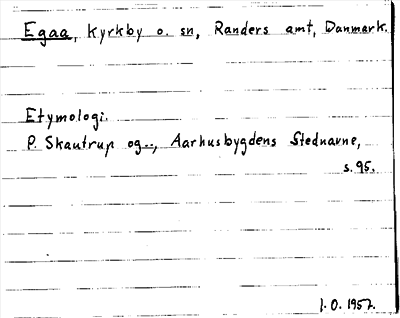 Egaa, kyrkby o. sn, Randers amt, Danmark.
Etymologi.
P. Skautrup og.., Aarhusbygdens Stednavne,
s. 95.
J. O. 1957.